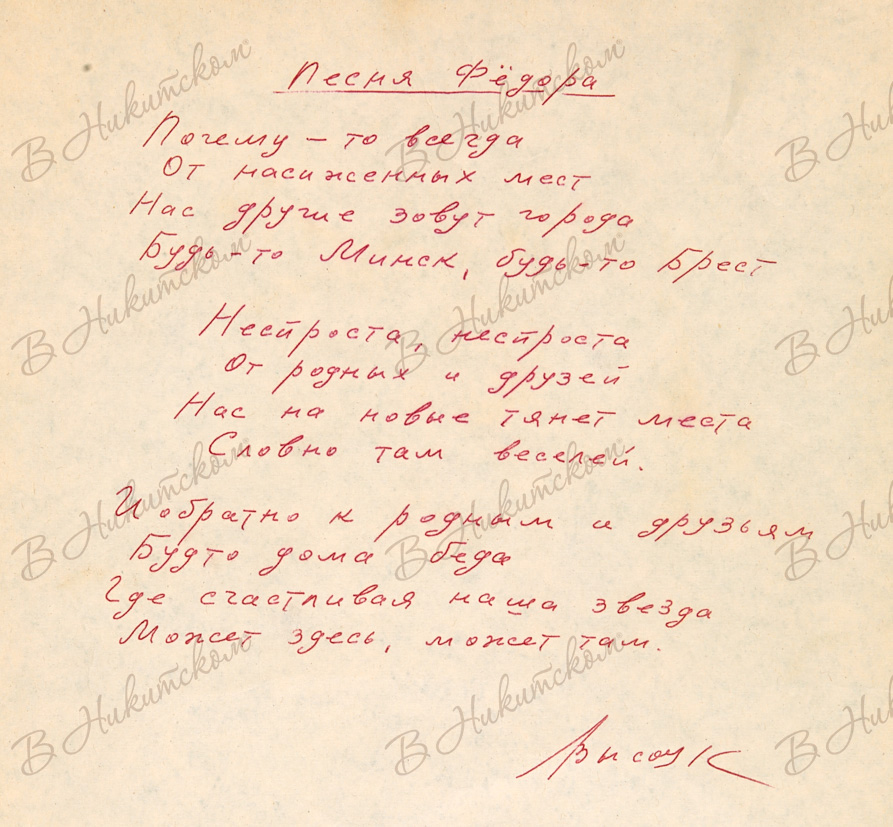 Песня Фёдора
Почему-то всегда
От насиженных мест
Нас другие зовут города
Будь-то Минск, будь-то Брест
Неспроста, неспроста
От родных и друзей
Нас на новые тянет места
Словно там веселей.
И обратно к родным и друзьям
Будто дома беда
Где счастливая наша звезда
Может здесь, может там.
В Никитском
В Никитском
В Никитском
В Никитском
В Никитском
В Никитском
В Никитском
В Никитском